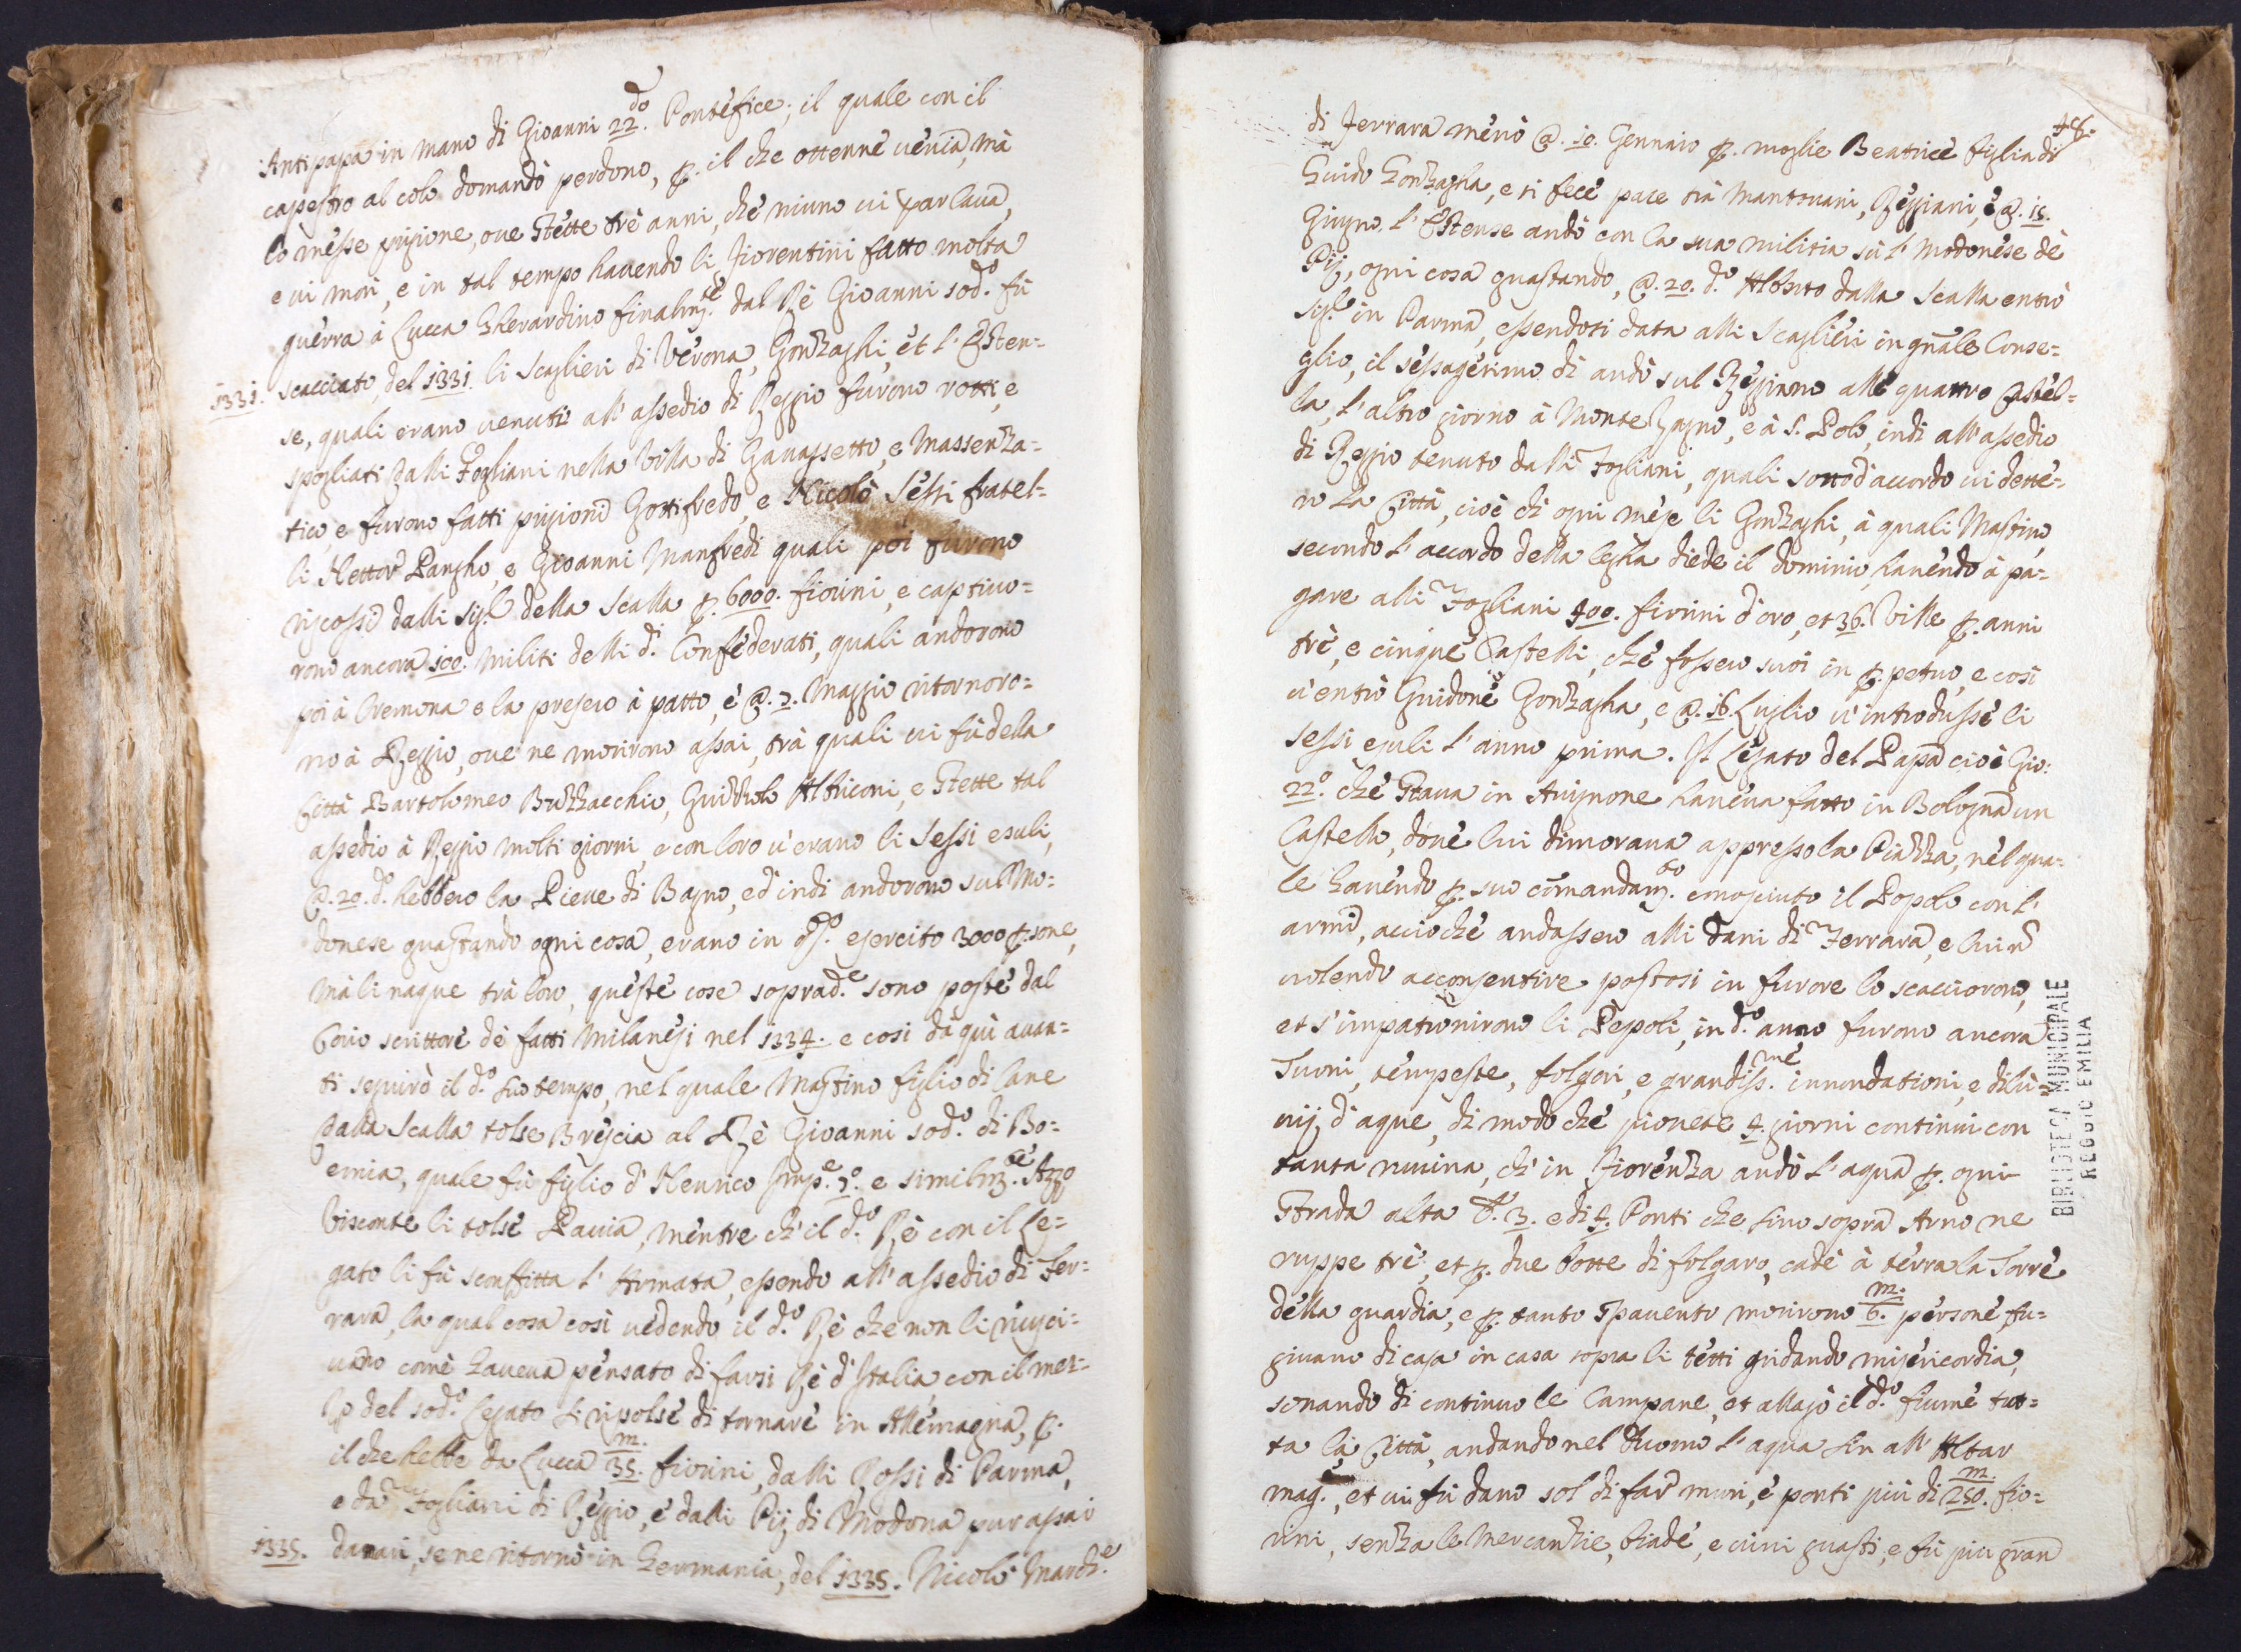 Antipapa in mano di Gioanni 22.do Pontefice; il quale con il
capestro al colo domandò perdono, p. il che ottenne uenia, mà
lo messe prigione, oue stette trè anni, che niuno ui parlaua,
e ui morì, e in tal tempo hauendo li Fiorentini fatto molta
guerra à Lucca Gherardino finalm.te dal Rè Gioanni sod.o fù
1331. scacciato, del 1331. li Scaglieri di Verona, Gonzaghi, et l'Esten=
se, quali erano uenuti all'assedio di Reggio furono rotti, e
spogliati dalli Fogliani nella Villa di Gauassetto, e Massenza=
tico, e furono fatti prigioni Gottifredo, e Nicolò Sessi fratel=
li Hettor Panzho, e Gioanni Manfredi quali poi furono
riscossi dalli Sig.i della Scalla p. 6000. fiorini, e captiuo=
rono ancora 100. militi delli d.i Confederati, quali andorono
poi à Cremona e la presero à patto, è @. 2. Maggio ritornoro=
no à Reggio, oue ne morirono assai, trà quali ui fù della
Città Bartolomeo Buzzacchio, Guizzolo Albriconi, e stette tal
assedio à Reggio molti giorni, e con loro u'erano li Sessi esuli,
@. 20. d.o hebbero la Pieue di Bagno, ed indi andorono sul Mo=
donese guastando ogni cosa, erano in q.to esercito 3000 p.sone,
mà li naque trà loro, queste cose soprad.e sono poste dal
Corio scrittore dè fatti Milanesi nel 1334. e cosi dà quì auan=
ti seguirò il d.o suo tempo, nel quale Mastino figlio di Cane
dalla Scalla tolse Brescia al Rè Gioanni sod.o di Bo=
emia, quale fù figlio d'Henrico Imp.e 7.o e similm.te Azzo
Visconte li tolse Pauia, mentre ch'il d.o Rè con il Le=
gato li fù sconfitta l'Armata, essendo all'assedio di Fer=
rara, la qual cosa così uedendo il d.o Rè che non li riusci=
uano come haueua pensato di farsi Rè d'Italia con il mez=
zo del sod.o Legato si risolse di tornare in Allemagna, p.
il che hebbe da Lucca 35.m fiorini, dalli Rossi di Parma,
e dà Fogliani di Reggio, e dalli Pij di Modona pur assai
1335. danari, se ne ritornò in Germania, del 1335. Nicolò March.e
46.
di Ferrara menò @. 10. Gennaio p. moglie Beatrice figlia di
Guido Gonzagha, e si fece pace trà Mantouani, Reggiani, è @. 15.
Giugno l'Estense andò con la sua militia sù l'Modonese dè
Pij, ogni cosa guastando, @. 20. d.o Alberto dalla Scalla entrò
Sig.e in Parma, essendosi data alli Scaglieri in gnale Conse=
glio, il sessagesimo dì andò sul Reggiano alle quattro Castel=
la, l'altro giorno à Monte Zagno, e à S. Polo, indi all'assedio
di Reggio tenuto dalli Fogliani, quali sotto d'accordo ui dette=
ro la Città, cioè ch'ogni mese li Gonzaghi, à quali Mastino,
secondo l'accordo della legha diede il dominio, hauendo à pa=
gare alli Fogliani 400. fiorini d'oro, et 36. Ville p. anni
trè, e cinque Castelli, che fossero suoi in p.petuo, e così
u'entrò Guidone Gonzagha, e @. 16. Luglio u'introdusse li
Sessi esuli l'anno prima. Il Legato del Papa cioè Gio:
22.o che staua in Auignone haueua fatto in Bologna un
Castello, doue lui dimoraua appresso la Piazza, nel qua=
le hauendo p. suo comandam.to conosciuto il Popolo con l'
armi, accioche andassero alli dani di Ferrara, e lui nõ
uolendo acconsentire postosi in furore lo scacciorono,
et s'impatronirono li Pepoli, in d.o anno furono ancora
Tuoni, tempeste, folgori, e grandiss.me innondationi, e dilu=
uij d'aque, di modo che piouete 4. giorni continui con
tanta ruuina, ch'in Fiorenza andò l'aqua p. ogni
strada alta B. 3. e di 4. Ponti che sino sopra Arno ne
ruppe trè, et p. due botte di folgaro, cadè à terra la Torre
della guardia, e p. tanto spauento morirono 6.m persone, fu=
giuano di casa in casa sopra li tetti gridando misericordia,
sonando di continuo le Campane, et allagò il d.o fiume tut=
ta la Città, andando nel Duomo l'aqua sin all'Altar
mag.e, et ui fù dano sol di far muri, e ponti più di 250.m fio=
rini, senza le mercanzie, biade, e uini guasti, e fù più gran
BIBLIOTECA MUNICIPALE
REGGIO EMILIA